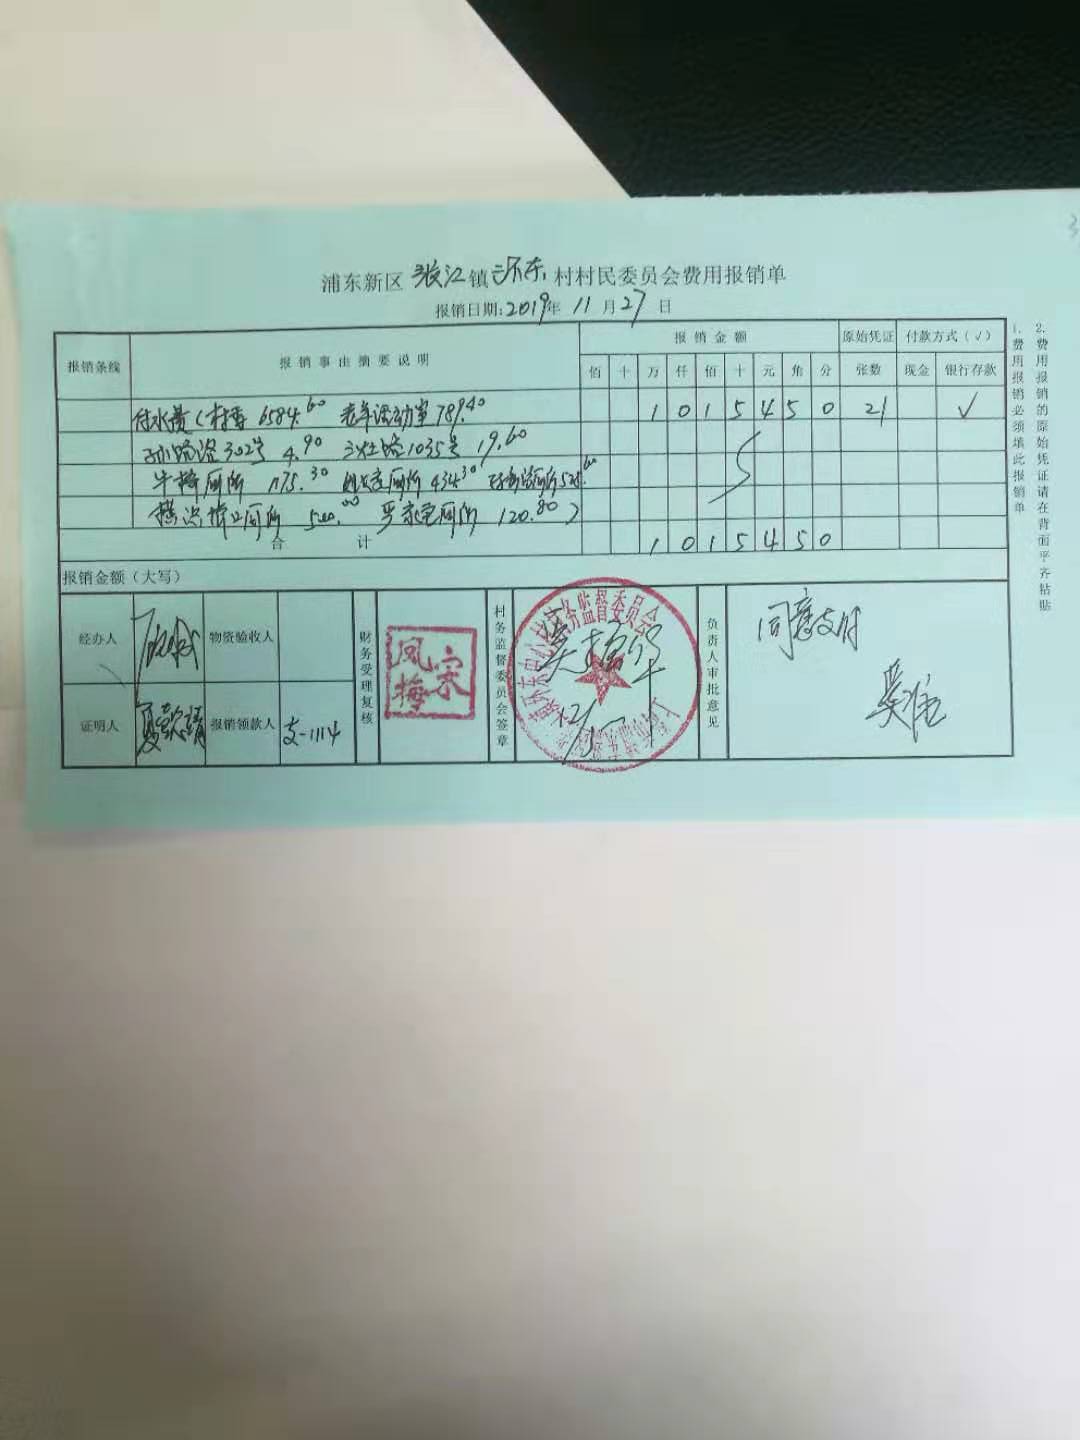 浦东新区 张江 镇 环东 村村民委员会费用报销单
报销日期:2019年 11 月 27 日
报销条线 报销事由摘要说明 报销金额 原始凭证 付款方式(√)
佰 十 万 仟 佰 十 元 角 分 张数 现金 银行存款
付水费(村委 6584.60 老年活动室 789.40 1 0 1 5 4 5 0 21 √
302号 4.90 1035号 19.60
厕所 1175.30 厕所 434.30 厕所 525.60
厕所 500.00 厕所 120.80)
合计 1 0 1 5 4 5 0
报销金额(大写)
经办人 物资验收人
证明人 报销领款人 支-1114
财务受理复核
宋凤梅
村务监督委员会签章
负责人审批意见
同意支付
1.费用报销必须填此报销单
2.费用报销的原始凭证请在背面平齐粘贴